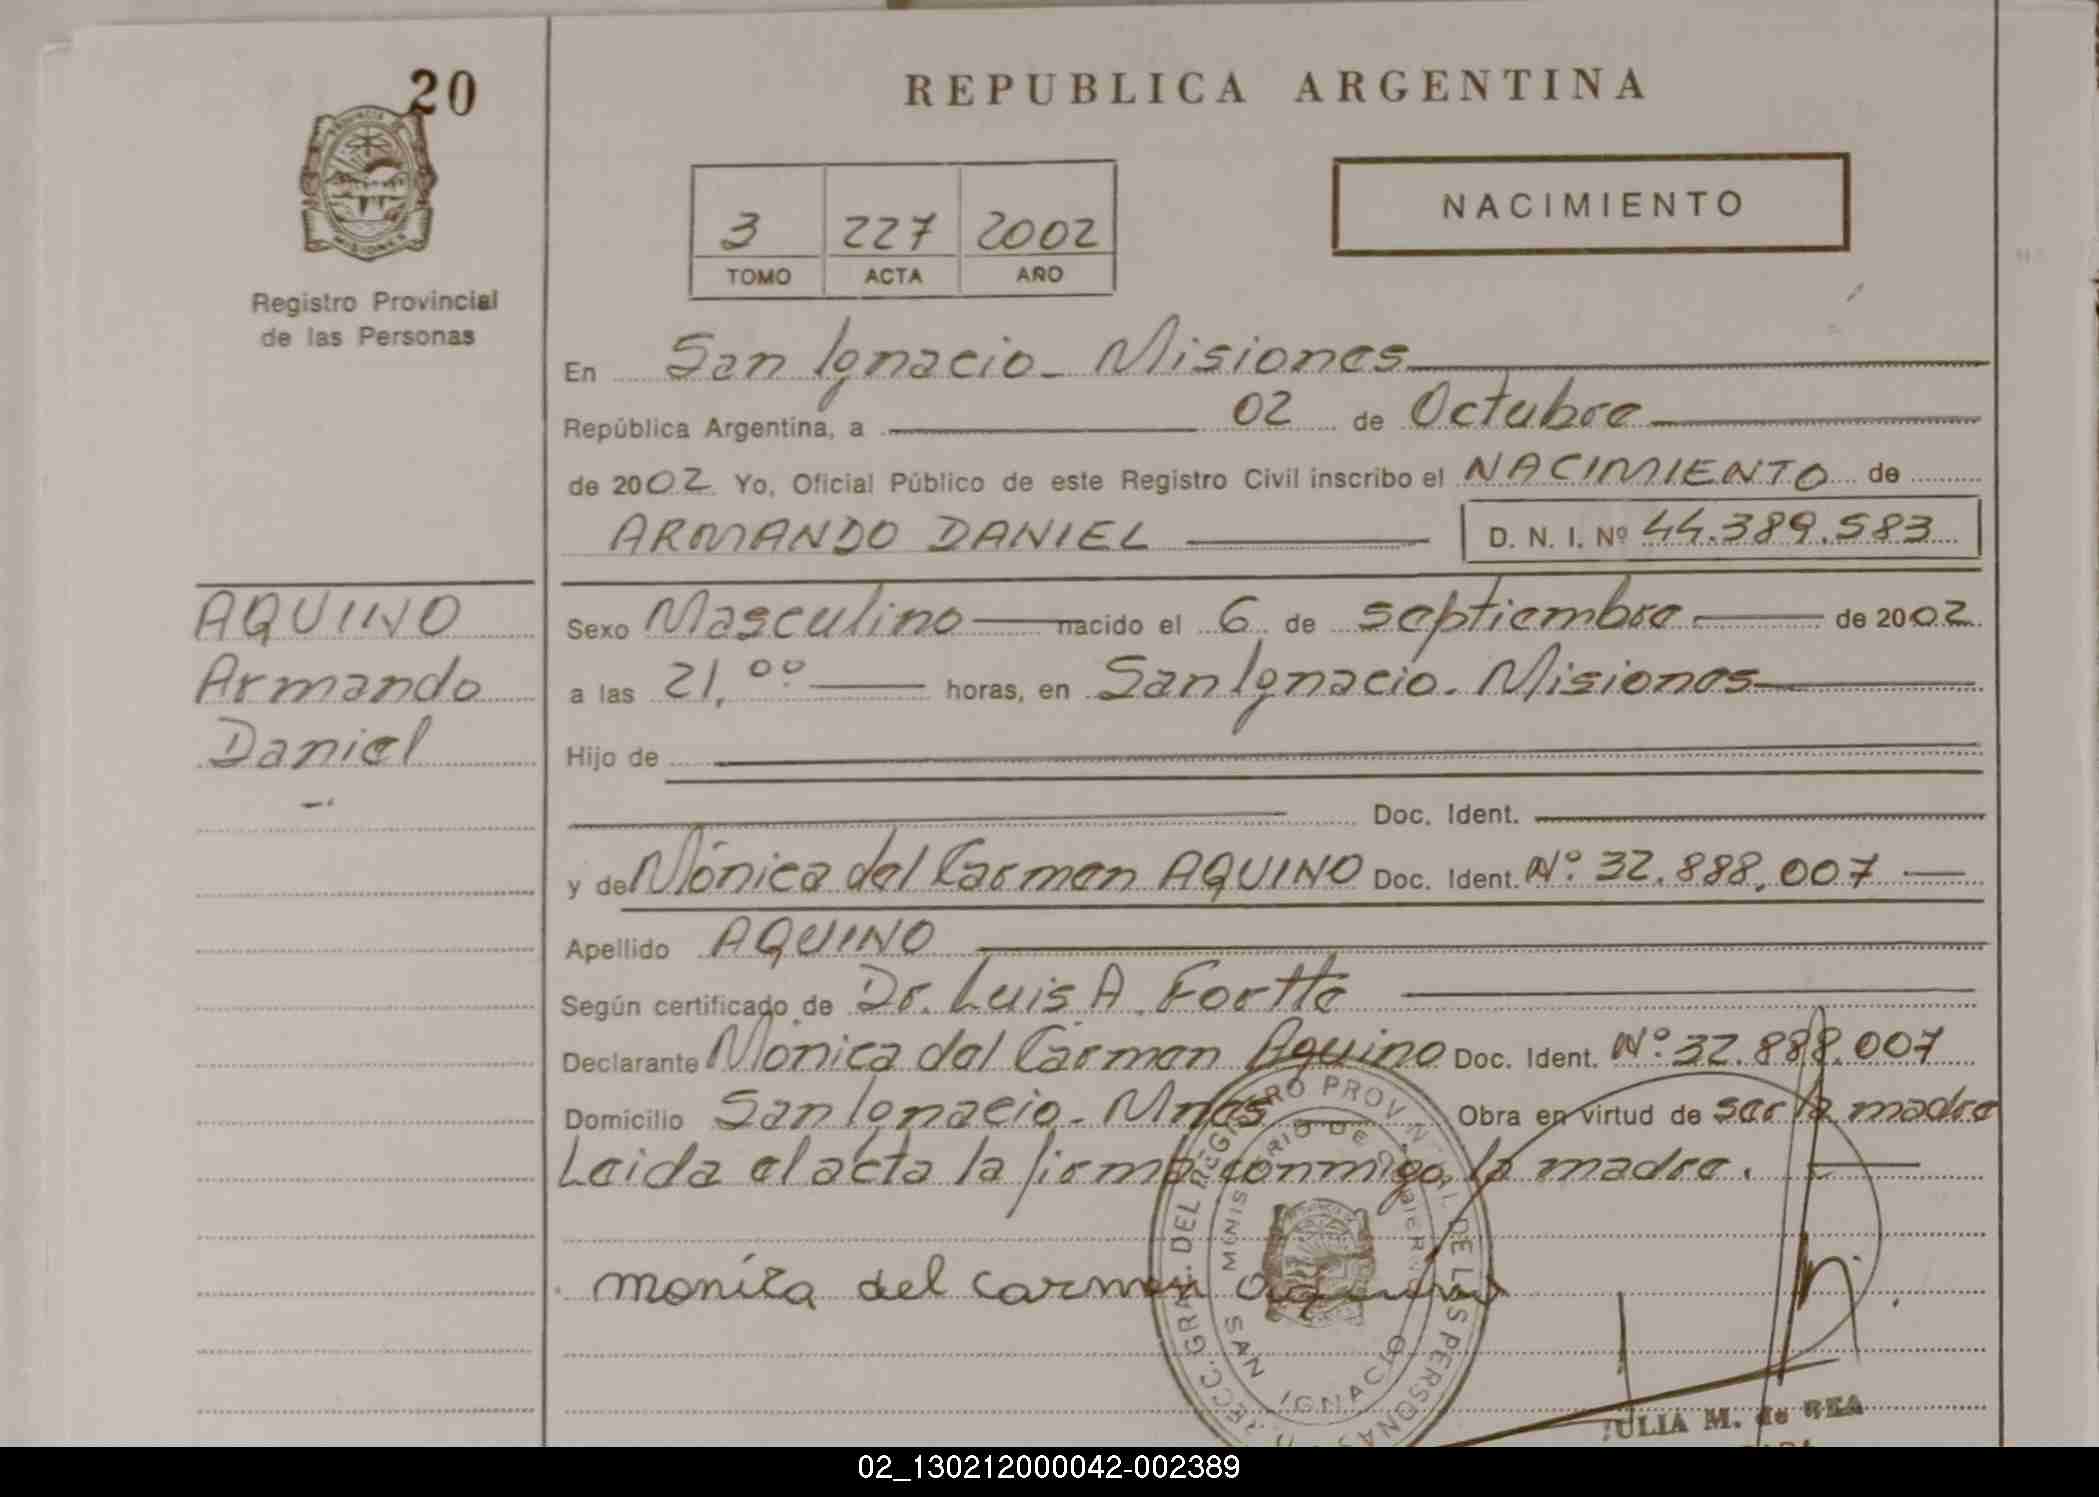 20
REPUBLICA ARGENTINA
NACIMIENTO
3 227 2002
TOMO ACTA AÑO
Registro Provincial
de las Personas
En San Ignacio - Misiones
República Argentina, a 02 de Octubre
de 2002 Yo, Oficial Público de este Registro Civil inscribo el NACIMIENTO de
ARMANDO DANIEL D. N. I. Nº 44.389.583
AQUINO
Armando
Daniel
Sexo Masculino nacido el 6 de septiembre de 2002
a las 21,00 horas, en San Ignacio. Misiones
Hijo de
Doc. Ident.
y de Mónica del Carmen AQUINO Doc. Ident. Nº: 32.888.007
Apellido AQUINO
Según certificado de Dr. Luis A. Fortte
Declarante Mónica del Carmen Aquino Doc. Ident. Nº: 32.888.007
Domicilio San Ignacio - Mnes Obra en virtud de ser la madre
Leida el acta la firma conmigo, la madre.
monica del carmen aquino
DEL REGISTRO PROVINCIAL DE LAS PERSONAS
MINISTERIO DE GOBIERNO
SAN IGNACIO
JULIA M. de REA
02_130212000042-002389